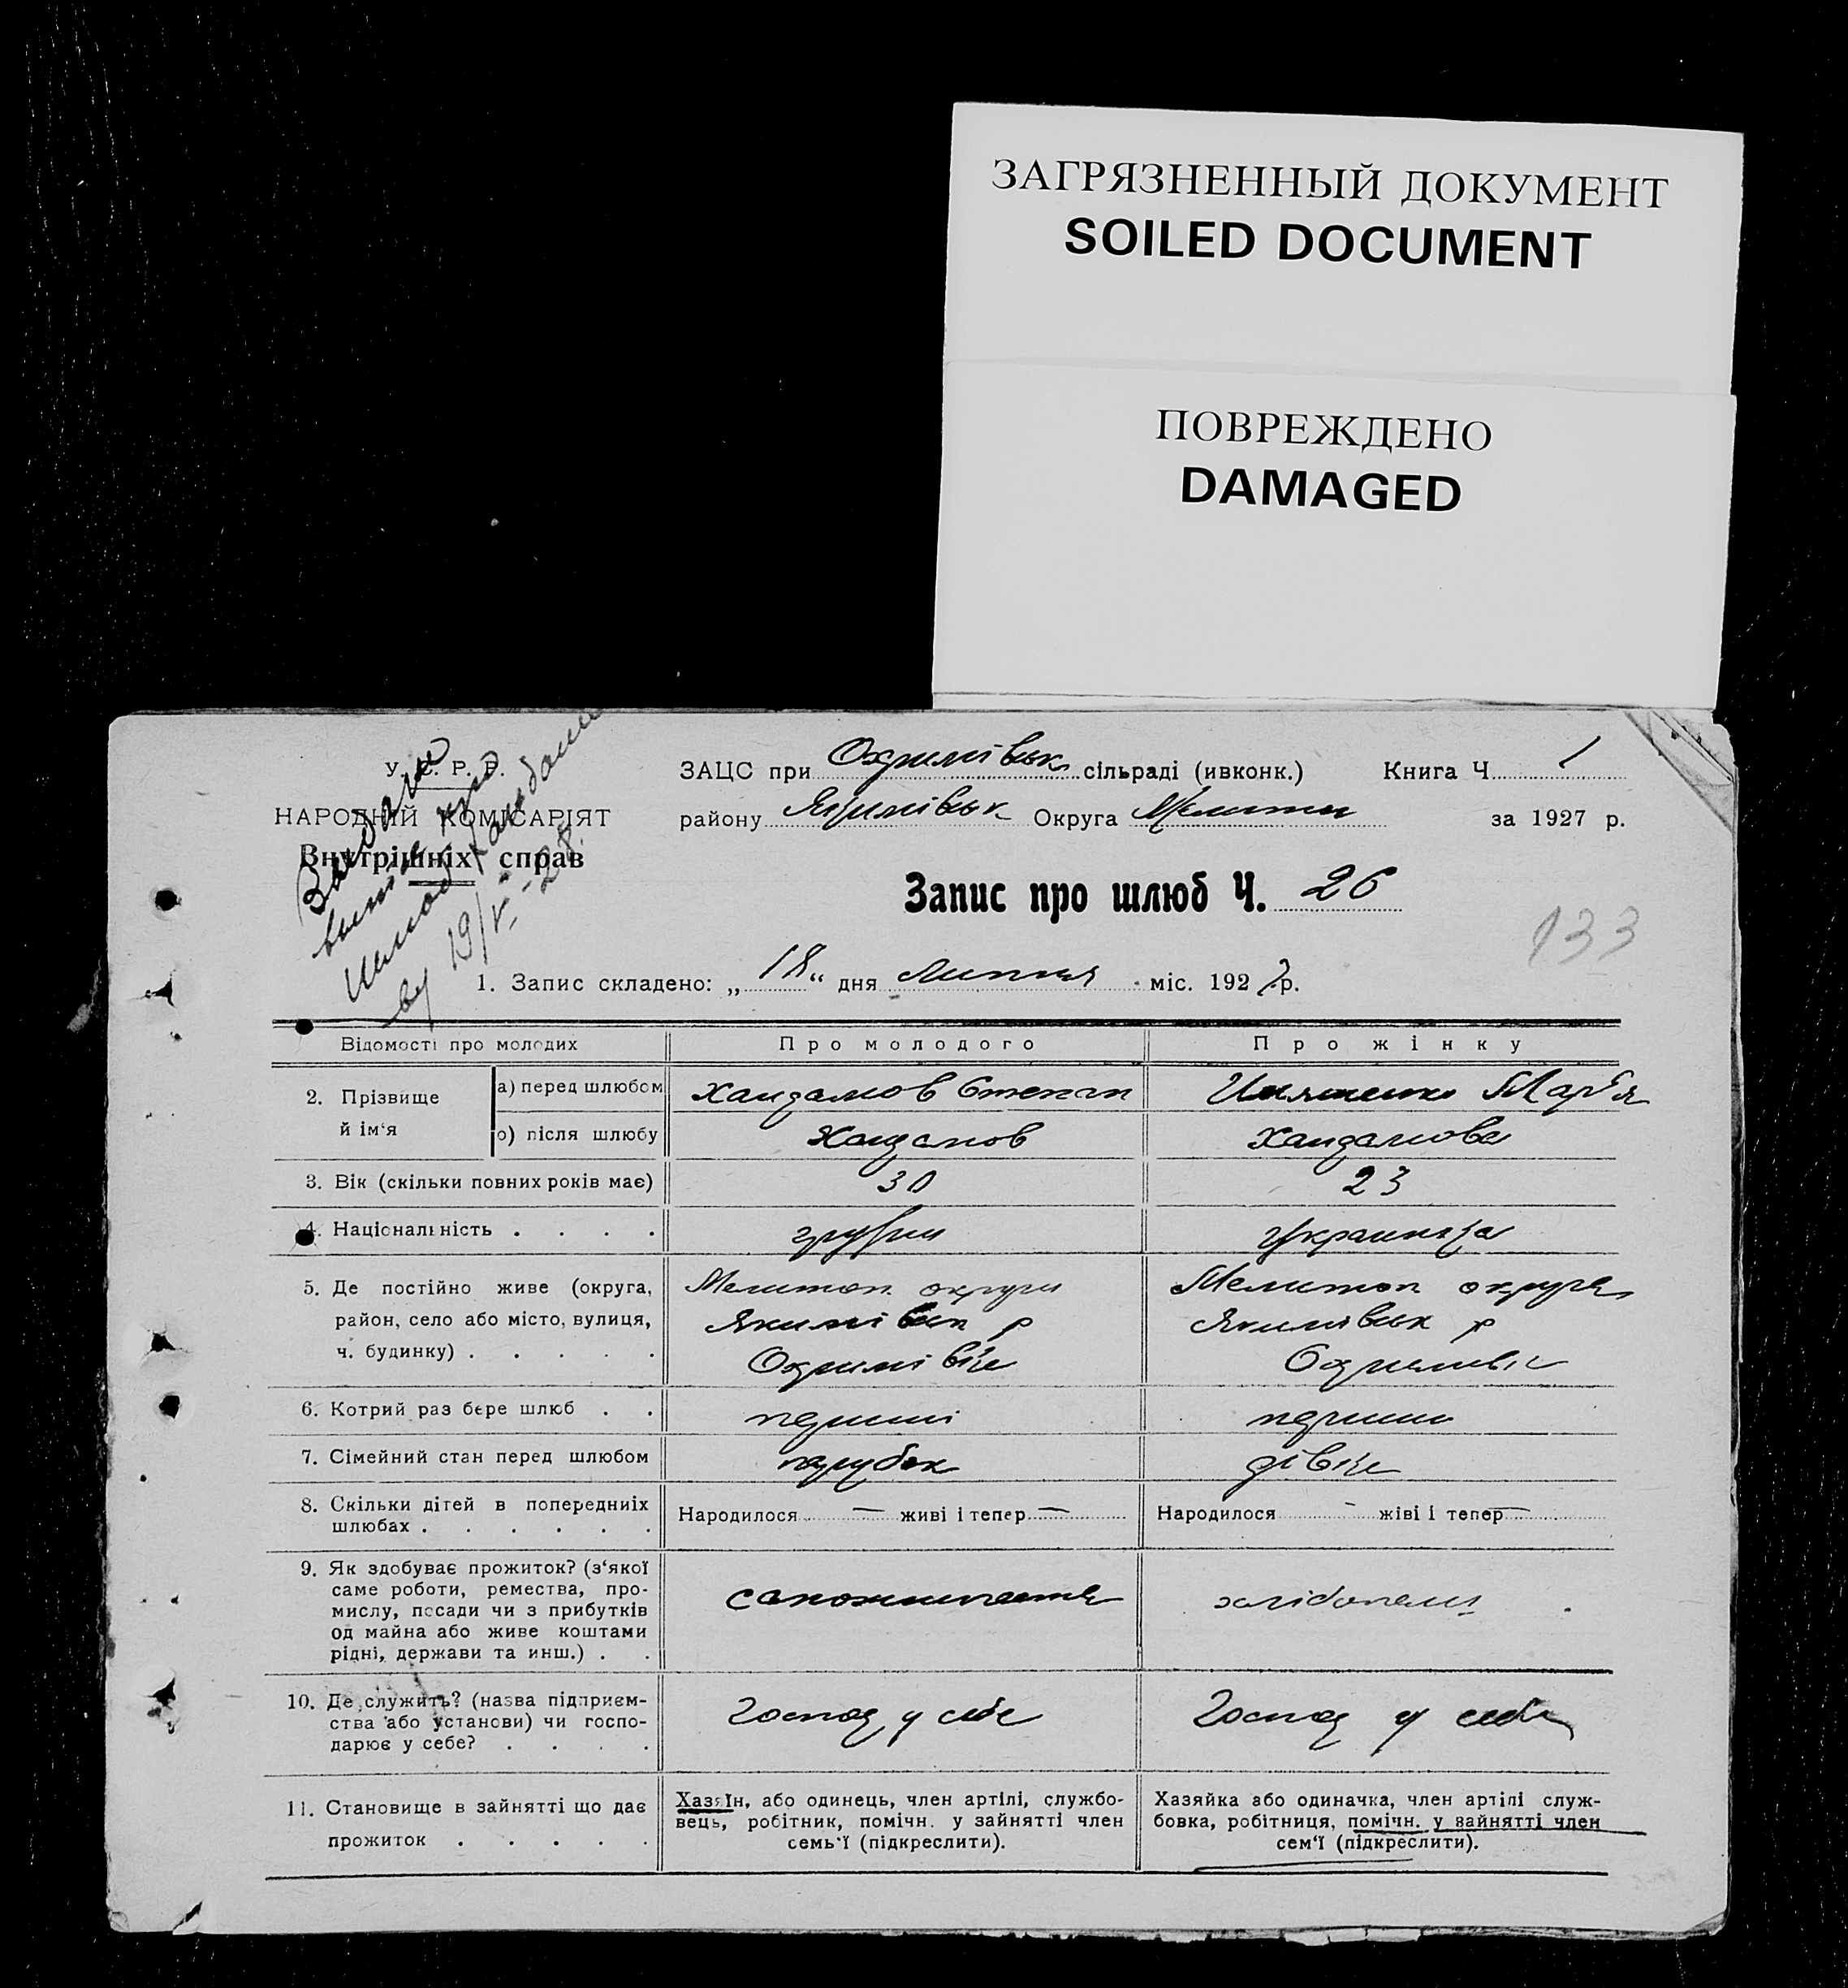 ЗАГРЯЗНЕННЫЙ ДОКУМЕНТ
SOILED DOCUMENT
ПОВРЕЖДЕНО
DAMAGED
У. С. Р. Р.
НАРОДНІЙ КОМІСАРІЯТ
Внутрішніх справ
19/V-28.
ЗАЦС при Охримівськ сільраді (ивконк.) Книга Ч. 1
району Якимівськ Округа Мелитоп за 1927 р.
Запис про шлюб Ч. 26
133
1. Запис складено: „18“ дня Липня міс. 1927 р.
Відомості про молодих Про молодого Про жінку
2. Прізвище й ім‘я а) перед шлюбом Хандамов Степан Мар‘я
о) після шлюбу Хандамов Хандамова
3. Вік (скільки повних років має) 30 23
4. Національність . . . . грузин Украинка
5. Де постійно живе (округа, Мелитоп округи Мелитоп округа
район, село або місто, вулиця, Якимівськ р Якимівськ р
ч. будинку) . . . . . Охримівка Охримівка
6. Котрий раз бере шлюб . . перший перший
7. Сімейний стан перед шлюбом парубок дівка
8. Скільки дітей в попередниіх Народилося — живі і тепер — Народилося - жіві і тепер —
шлюбах . . . . . .
9. Як здобуває прожиток? (з‘якої
саме роботи, ремества, про-
мислу, посади чи з прибутків
од майна або живе коштами
рідні, держави та инш.) . .
10. Де служить? (назва підприєм-
ства або установи) чи госпо- Господ у себе Господ у себе
дарює у себе? . . . .
11. Становище в зайнятті що дає
прожиток . . . . .
Хазяїн, або одинець, член артілі, службо-
вець, робітник, помічн. у зайнятті член
семь‘ї (підкреслити).
Хазяйка або одиначка, член артілі служ-
бовка, робітниця, помічн. у зайнятті член
сем‘ї (підкреслити).